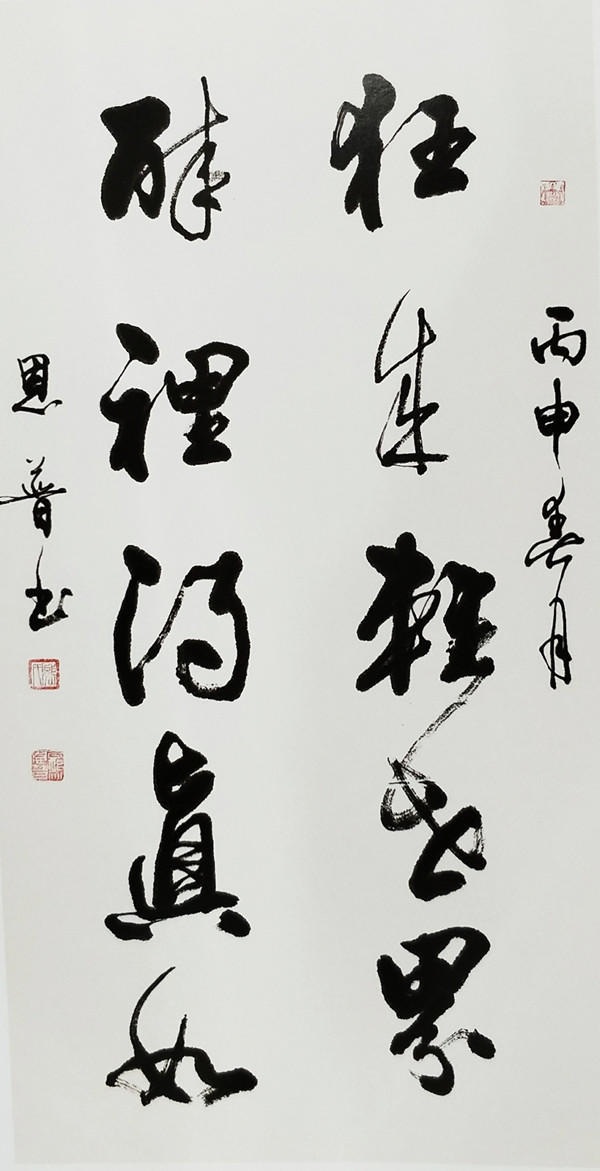 丙申春月
狂来輕世界
醉裡得真如
恩普书